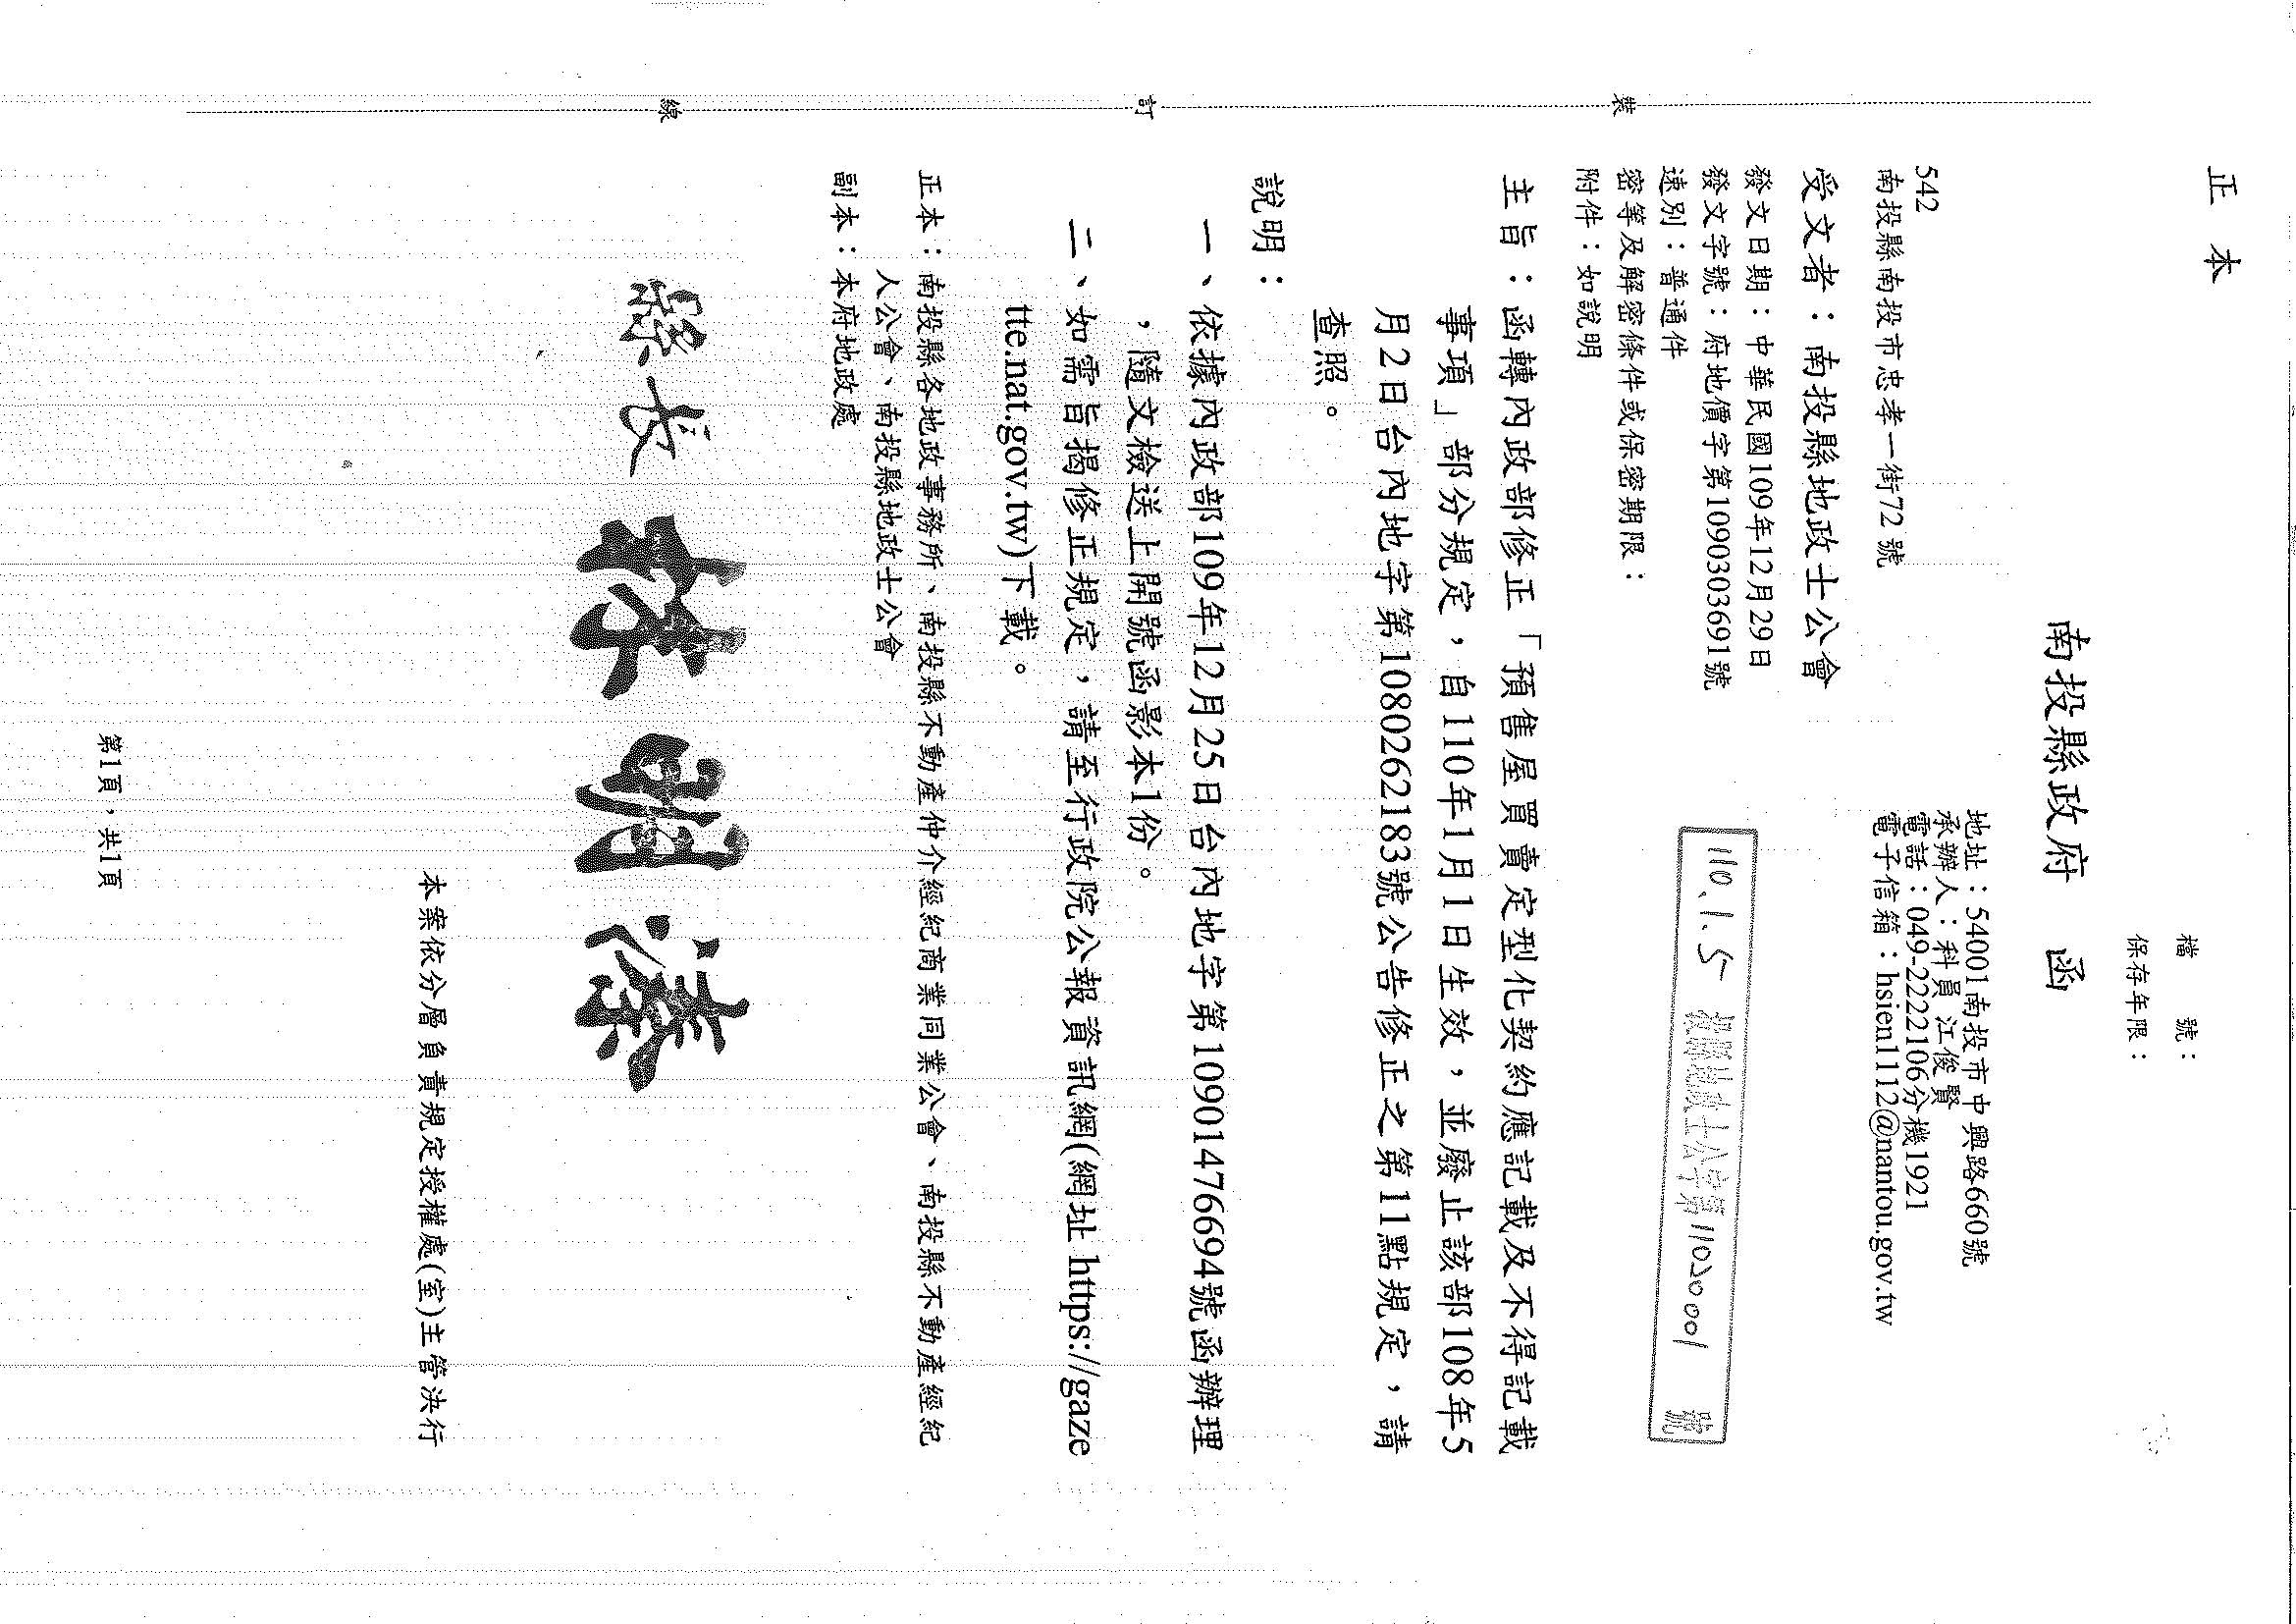 正本
檔 號：
保存年限：
南投縣政府 函
地址：54001南投市中興路660號
承辦人：科員 江俊賢
電話：049-2222106分機1921
電子信箱：hsien1112@nantou.gov.tw
542
南投縣南投市忠孝一街72號
受文者：南投縣地政士公會
發文日期：中華民國109年12月29日
發文字號：府地價字第1090303691號
速別：普通件
密等及解密條件或保密期限：
附件：如說明
110.1.5 投縣地政士公字第11020001 號
主旨：函轉內政部修正「預售屋買賣定型化契約應記載及不得記載
事項」部分規定，自110年1月1日生效，並廢止該部108年5
月2日台內地字第1080262183號公告修正之第11點規定，請
查照。
說明：
一、依據內政部109年12月25日台內地字第10901476694號函辦理
，隨文檢送上開號函影本1份。
二、如需旨揭修正規定，請至行政院公報資訊網(網址https://gaze
tte.nat.gov.tw)下載。
正本：南投縣各地政事務所、南投縣不動產仲介經紀商業同業公會、南投縣不動產經紀
人公會、南投縣地政士公會
副本：本府地政處
縣長 林明溱
本案依分層負責規定授權處(室)主管決行
第1頁，共1頁
裝
訂
線